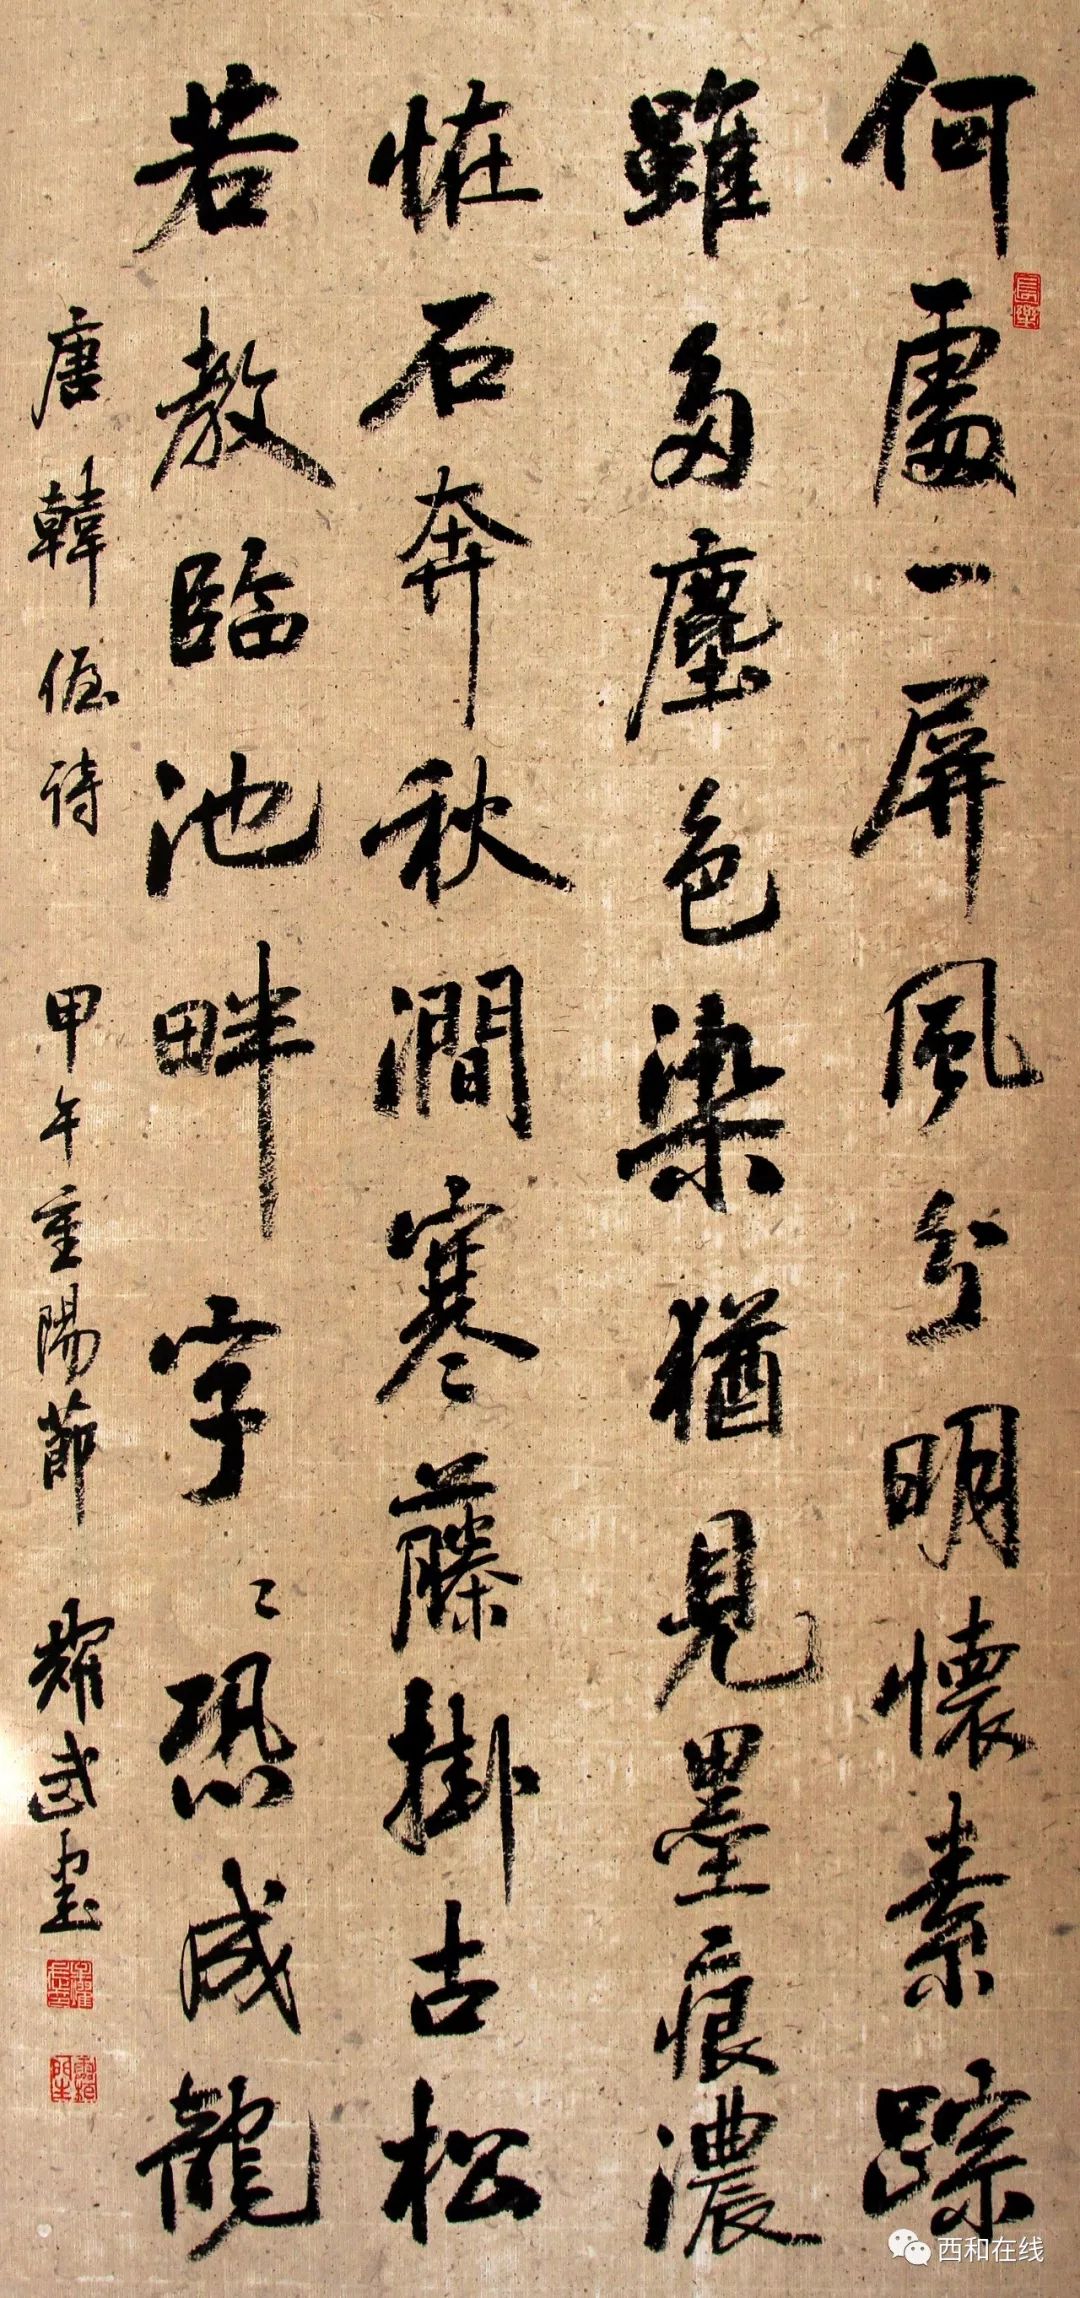 何處一屏風分明懷素踪
雖多塵色染猶見墨痕濃
恠石奔秋澗寒藤掛古松
若教臨池畔字〻恐成龍
唐韓偓詩 甲午重陽節 耀武書
長樂
西和在线